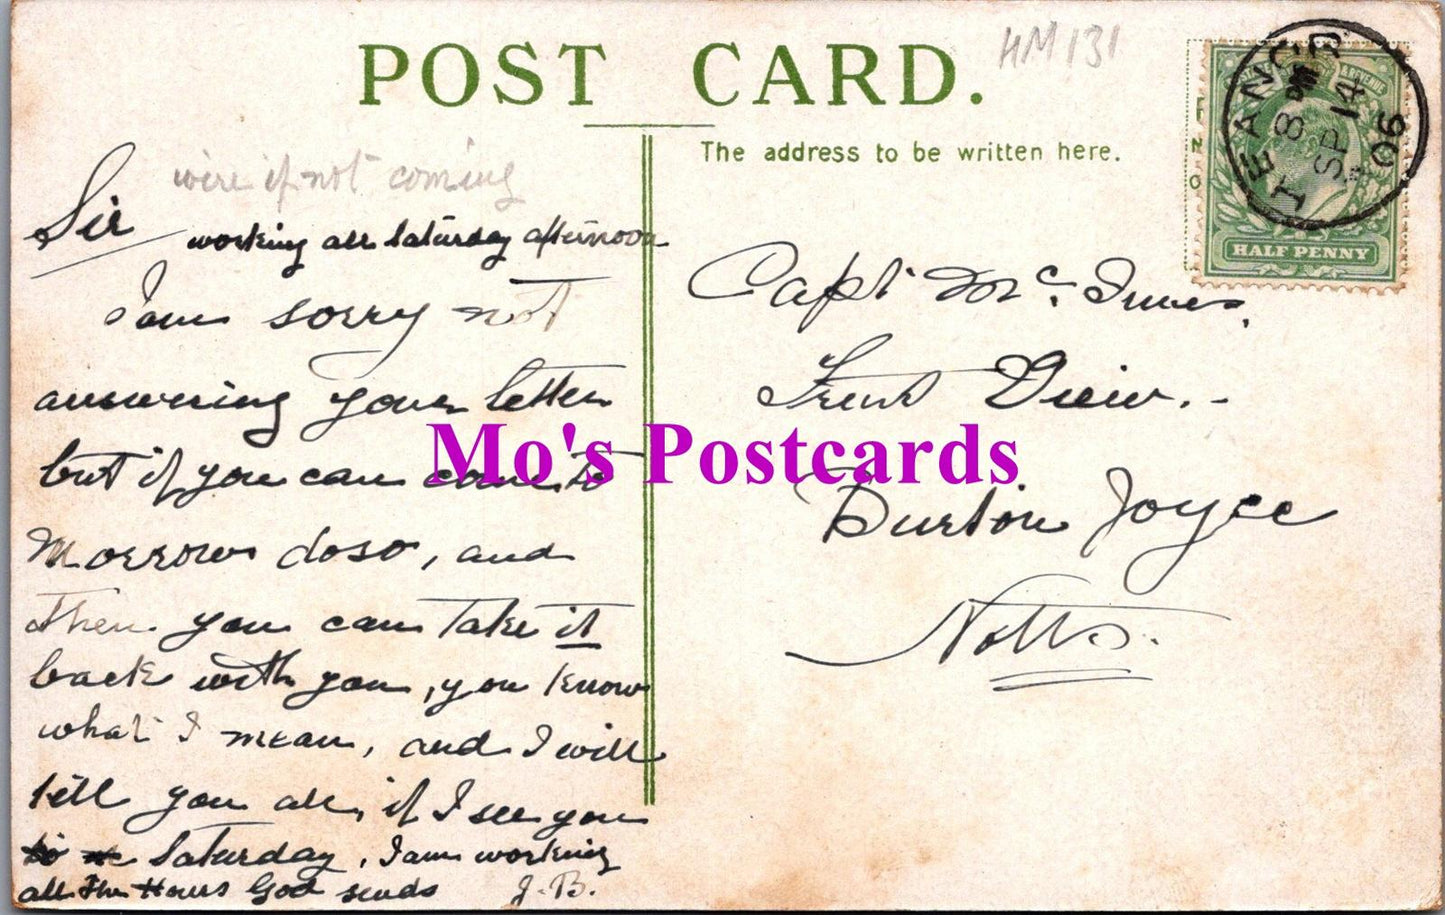 POST CARD.
HM131
The address to be written here.
HALF PENNY
8 PM
SP 14
06
wire if not coming
Sir working all Saturday afternoon
I am sorry not
answering your letter
but if you can come to
Morrow do so, and
then you can take it
back with you, you know
what I mean, and I will
tell you all, if I see you
Saturday, I am working
all the Hours God sends J.B.
Capt. Mc. Innes,
Trent View.
Burton Joyce
Notts.
Mo's Postcards